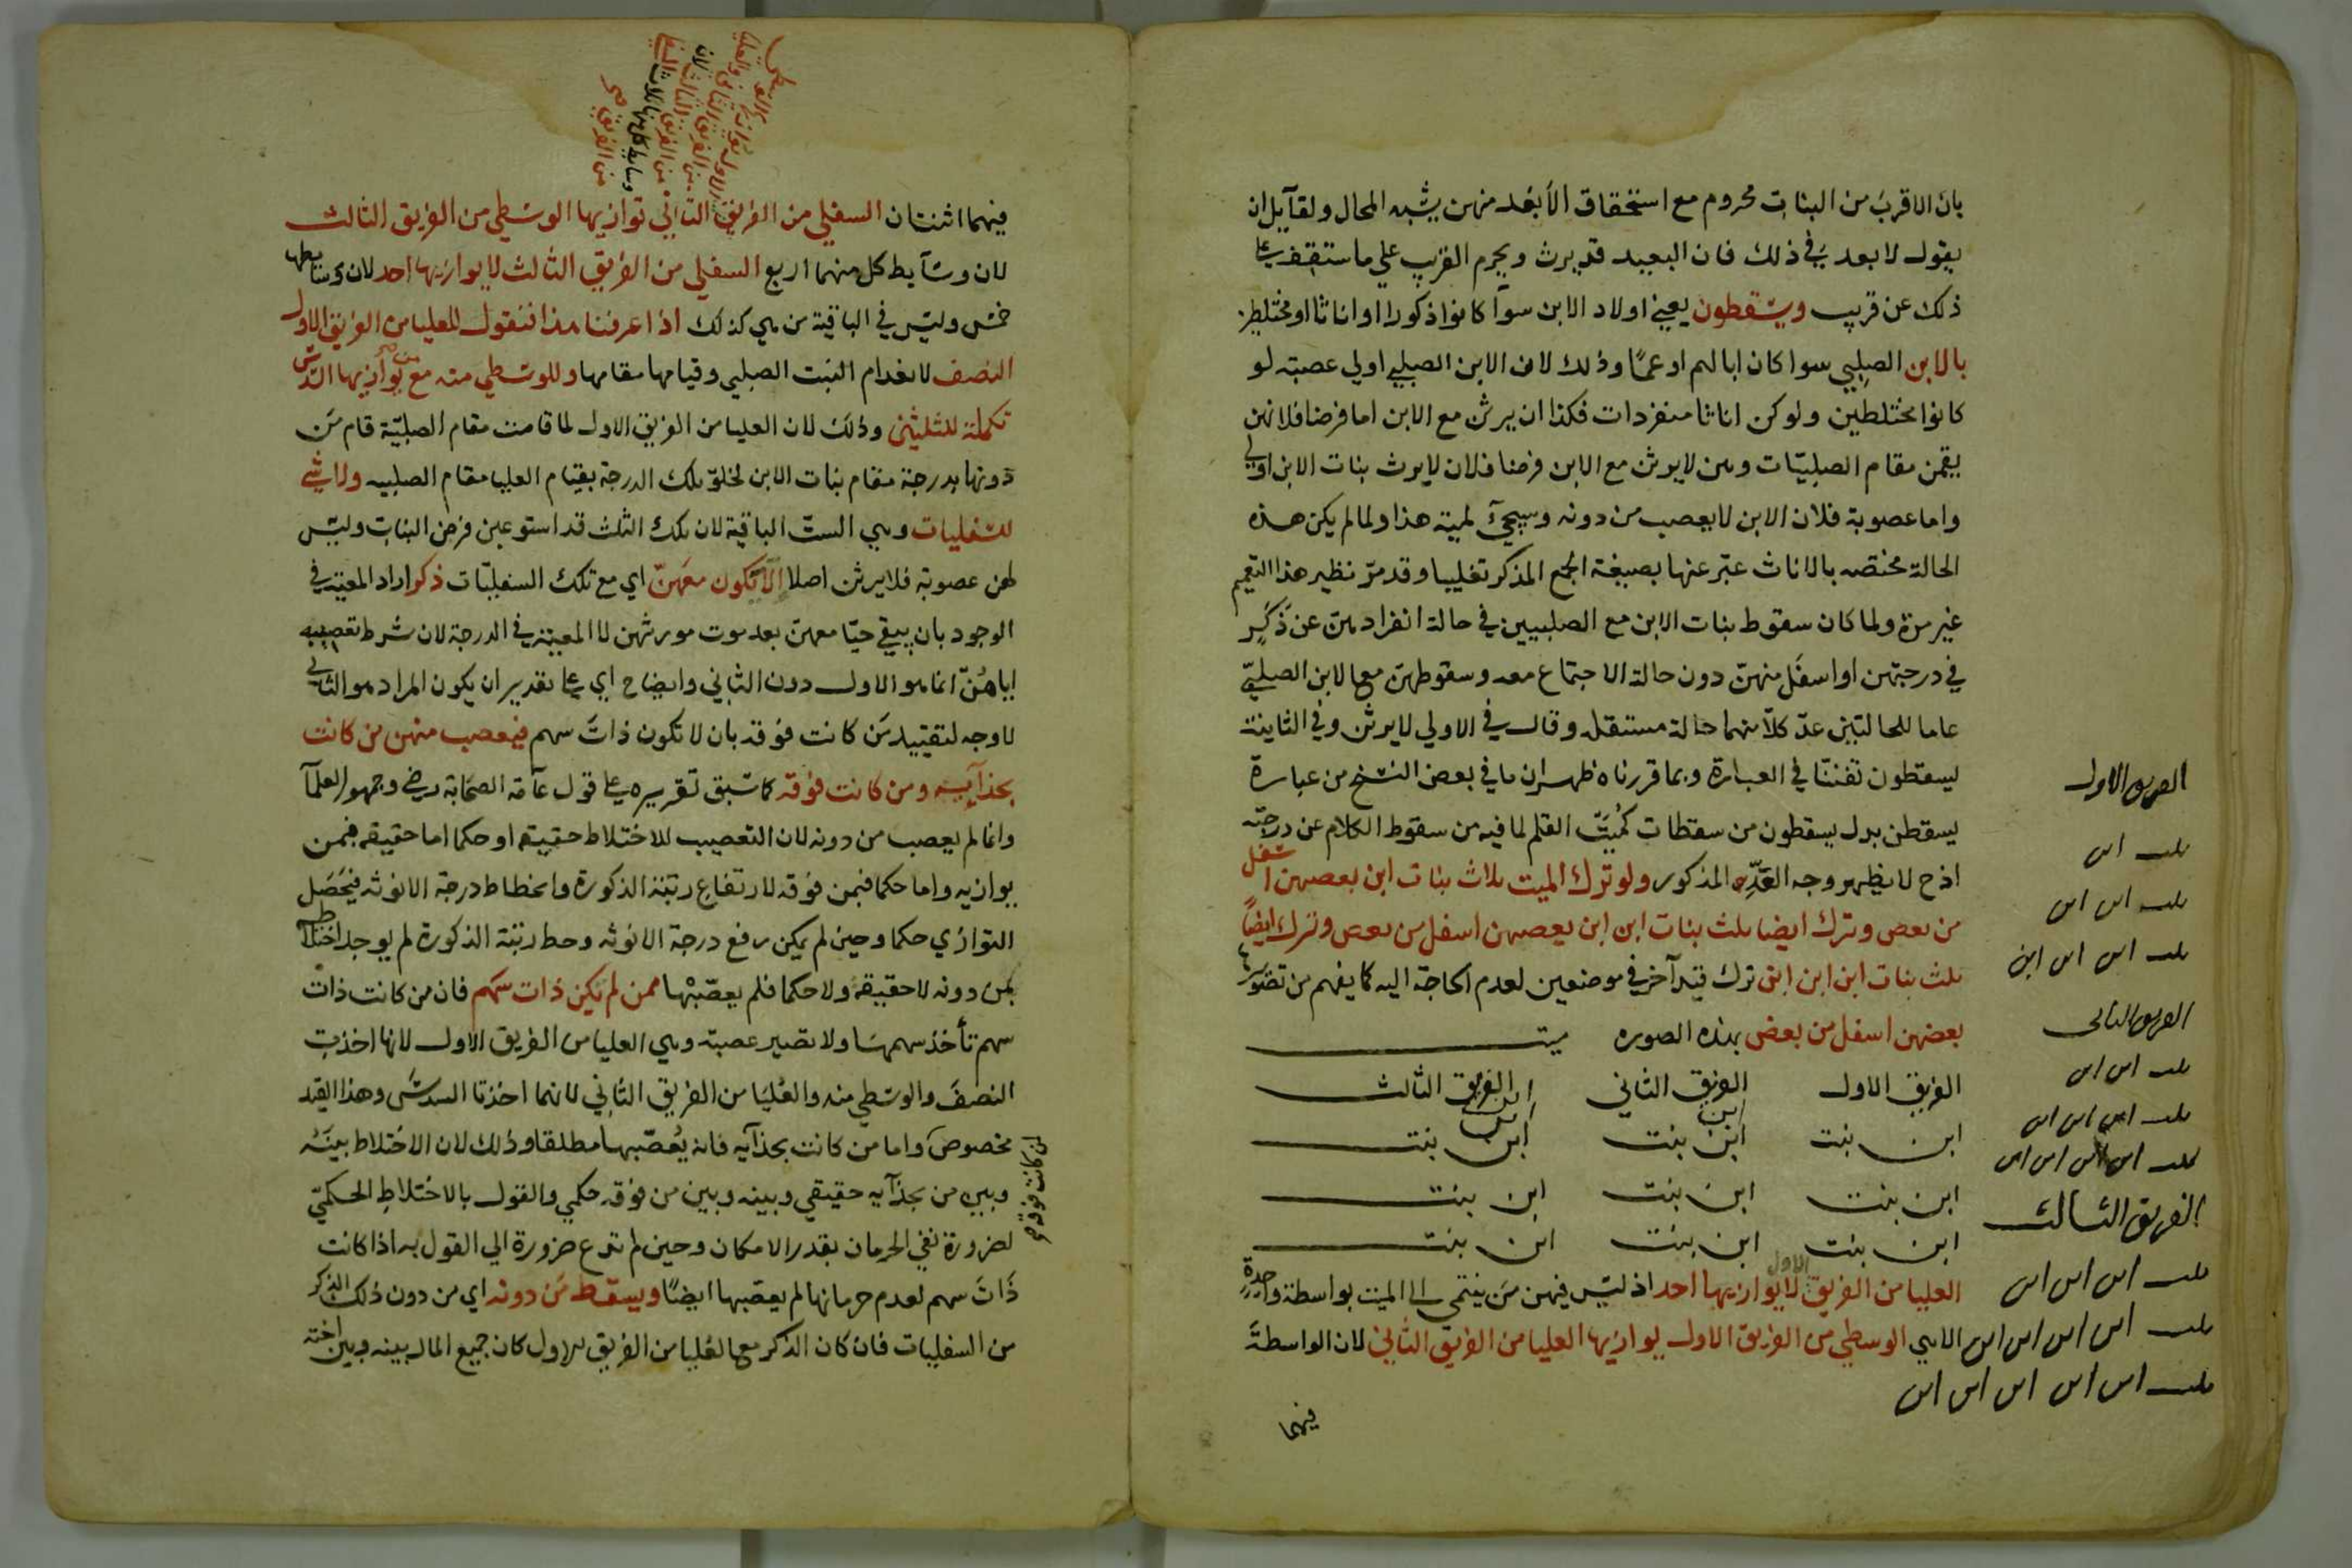 بان الاقرب من البنات محروم مع استحقاق الأبعد منهن يشبه المحال ولقآيل ان
يقول لا بعد في ذلك فان البعيد قد يرث ويحرم القريب علي ما ستقف علي
ذلك عن قريب ويسقطون يعني اولاد الابن سوآ كانوا ذكورا او اناثا او مختلطين
بالابن الصلبي سوا كان ابا لهم او عمًا وذلك لان الابن الصلبي اولي عصبة لو
كانوا مختلطين ولو كن اناثا منفردات فكذا ان يرثن مع الابن اما فرضا فلانهن
يقمن مقام الصلبيّات وهن لا يرثن مع الابن فرضا فلان لا يرث بنات الابن اولي
واما عصوبة فلان الابن لا يعصب من دونه وسيجيء لميته هذا ولما لم يكن هذه
الحالة مختصه بالاناث عبّر عنها بصيغة الجمع المذكر تغليبا وقد مرّ نظير هذا التعميم
غير مرة ولما كان سقوط بنات الابن مع الصلبيين في حالة انفرادهنّ عن ذَكَرٍ
في درجتهن او اسفَل منهنّ دون حالة الاجتماع معه وسقوطهنّ مع الابن الصلبيّ
عاما للحالتين عدّ كلاّ منهما حالة مستقلة وقال في الاولي لا يرثن وفي الثانية
ليسقطون تفننًا في العبارة وبما قررناه ظهر ان ما في بعض النسخ من عبارة
يسقطن بدل يسقطون من سقطات كُمَيت القلم لما فيه من سقوط الكلام عن درجته
اذ ح لا يظهر وجه العَدّ المذكور ولو ترك الميت ثلاث بنات ابن بعضهن اسفل
من بعض وترك ايضا ثلث بنات ابن ابن بعضهن اسفل من بعض وترك ايضاً
ثلث بنات ابن ابن ابن ترك قيد آخر في موضعين لعدم الحاجة اليه كما يفهم من تصويرها
بعضهن اسفل من بعض بهذه الصوره ميت
الفريق الاول الفريق الثاني الفريق الثالث
ابن بنت ابن ابن بنت ابن بنت
ابن بنت ابن بنت ابن بنت
ابن بنت ابن بنت ابن بنت
العليا من الفريق الاول لا يوازيها احد اذ ليس فيهن من ينتمي الي الميت بواسطة واحدة
الاهي الوسطي من الفريق الاول يوازيها العليا من الفريق الثاني لان الواسطةَ
فيهما
الفريق الاول
بنت ابن
بنت ابن ابن
بنت ابن ابن ابن
الفريق الثاني
بنت ابن ابن
بنت ابن ابن ابن
بنت ابن ابن ابن ابن
الفريق الثالث
بنت ابن ابن ابن
بنت ابن ابن ابن ابن
بنت ابن ابن ابن ابن ابن
فيهما اثنتان السفلي من الفريق الثاني توازيها الوسطي من الفريق الثالث
لان وسآيط كل منهما اربع السفلي من الفريق الثالث لا يوازيها احد لان وسائطها
خمس وليس في الباقية من هي كذلك اذا عرفنا هذا فنقول للعليا من الفريق الاول
النصف لانعدام البنت الصلبي وقيامها مقامها وللوسطي منه مع من يوازيها السدس
تكملة للثلثين وذلك لان العليا من الفريق الاول لما قامت مقام الصلبيّة قام مَن
دونها بدرجة مقام بنات الابن لخلوّ تلك الدرجة بقيام العليا مقام الصلبيه ولا شيْ
للسفليات وهي الستّ الباقية لان تلك الثلث قد استوعبن فرض البنات وليس
لهن عصوبة فلا يرثن اصلا الا ان يكون معهنّ اي مع تلك السفليّات ذكر اراد المعية في
الوجود بان يبقي حيّا معهن بعد موت مورثهن لا المعية في الدرجة لان شرط تعصيبه
اياهُنّ انما هو الاول دون الثاني وايضا ح اي علي تقدير ان يكون المراد هو الثاني
لا وجه لتقييد مَن كانت فوقه بان لا تكون ذاتَ سهم فيعصب منهن من كانت
بحذآيه ومن كانت فوقه كما سبق تقريره علي قول عآمة الصحابة رضي وجمهور العلمآ
وانما لم يعصب من دونه لان التعصيب للاختلاط حقيقة او حكما اما حقيقه فبمن
يوازيه واما حكما فبمن فوقه لارتفاع رتبة الذكورة وانحطاط درجة الانوثه فيَحصَل
التوازي حكما وحين لم يكن رفع درجة الانوثه وحط رتبة الذكورة لم يوجد اختلاط
بمن دونه لا حقيقة ولا حكما فلم يعصّبها ممن لم تكن ذات سهم فان من كانت ذات
سهم تأخذ سهمها ولا تصير عصبة وهي العليا من الفريق الاول لانها اخذت
النصفَ والوسطي منه والعُليَا من الفريق الثاني لانهما اخذتا السدس وهذا القيد
مخصوص واما من كانت بحذآيه فانه يُعصّبها مطلقا وذلك لان الاختلاط بينَهُ
وبين من بحذآيه حقيقي وبينه وبين من فوقه حكمي والقول بالاختلاط الحكميّ
لضرورة نفي الحرمان بقدر الامكان وحين لم تدع ضرورة الي القول به اذا كانت
ذَاتَ سهم لعدم حرمانها لم يعصّبها ايضًا ويسقط مَن دونه اي من دون ذلك الذكر
من السفليات فان كان الذكر مع العليا من الفريق الاول كان جميع المال بينه وبين اخته